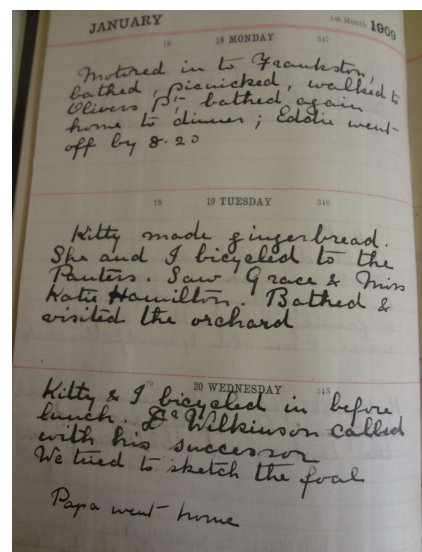 JANUARY 1st Month 1909
18 18 MONDAY 347
Motored in to Frankston,
bathed, picnicked, walked to
Olivers Pt, bathed again
home to dinner; Eddie went
off by 8.20
19 19 TUESDAY 346
Kitty made gingerbread.
She and I bicycled to the
Panters. Saw Grace & Miss
Katie Hamilton. Bathed &
visited the orchard
20 20 WEDNESDAY 345
Kitty & I bicycled in before
lunch. Dr Wilkinson called
with his successor
We tried to sketch the foal
Papa went home